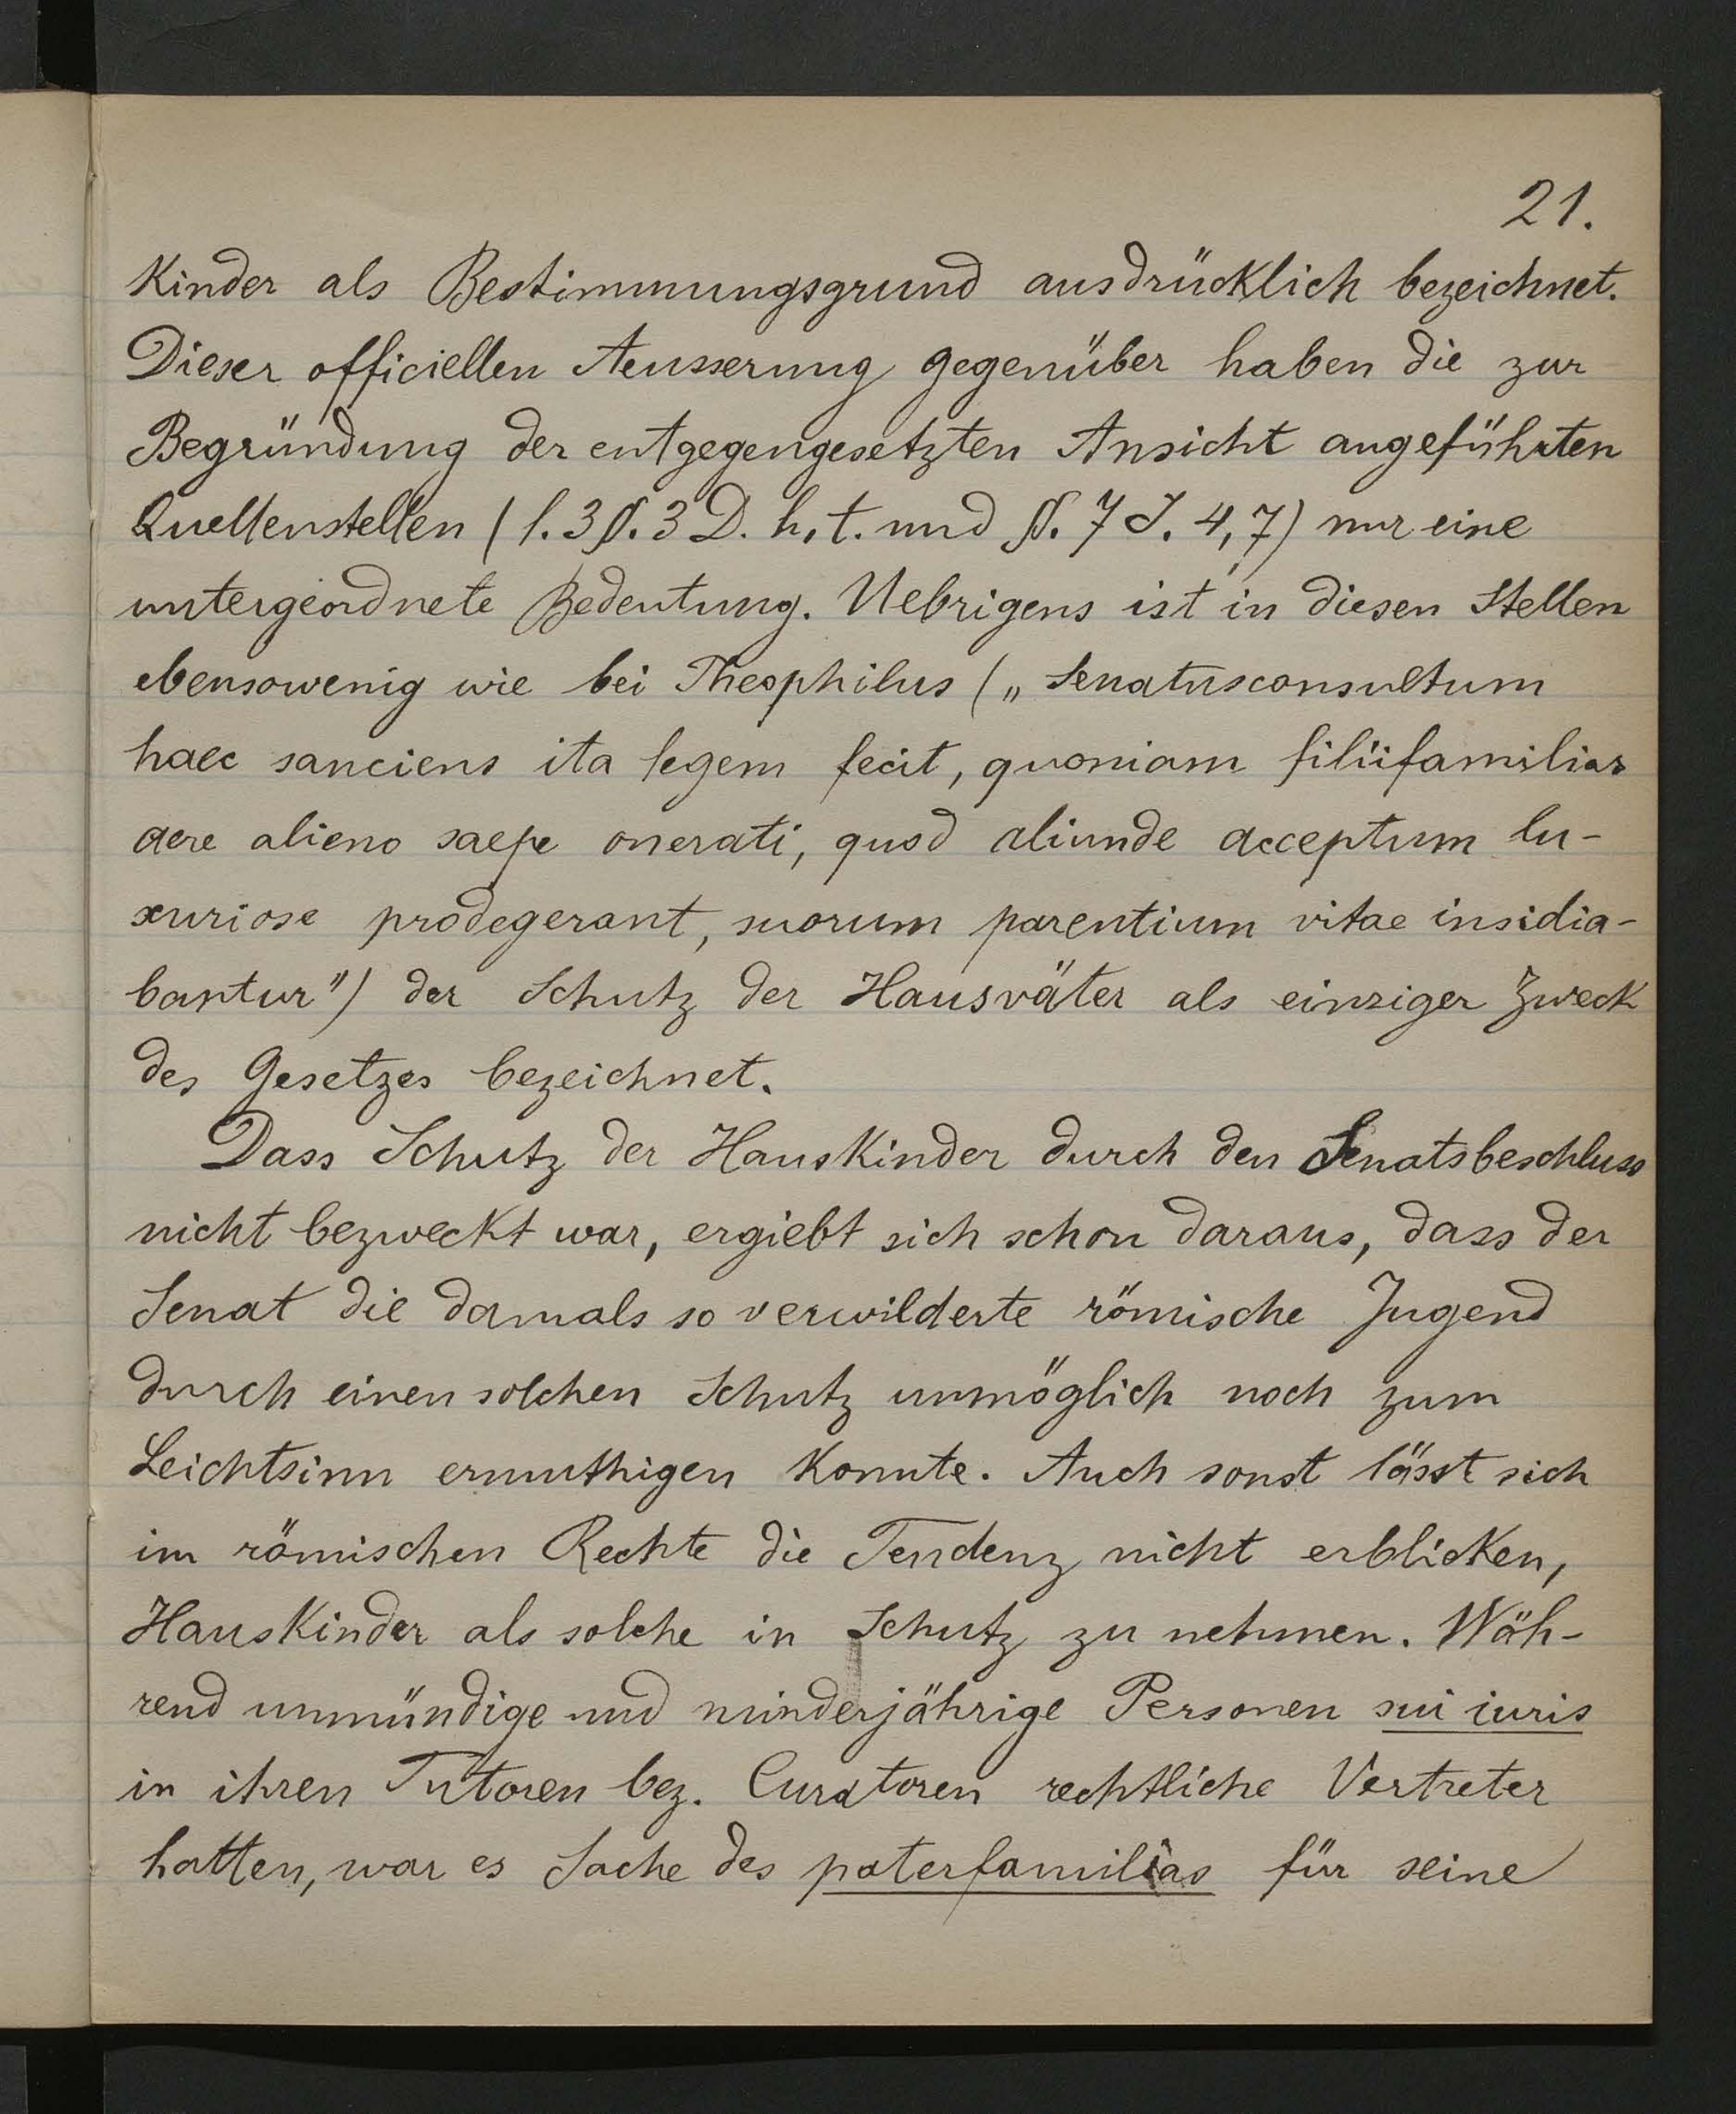 21.
Kinder als Bestimmungsgrund ausdrücklich bezeichnet.
Dieser officiellen Aeusserung gegenüber haben die zur
Begründung der entgegengesetzten Ansicht angeführten
Quellenstellen (l. 3 §. 3 D. h. t. und §. 7 J. 4, 7) nur eine
untergeordnete Bedeutung. Uebrigens ist in diesen Stellen
ebensowenig wie bei Theophilus („Senatusconsultum
haec sanciens ita legem fecit, quoniam filiifamilias
aere alieno saepe onerati, quod aliunde acceptum lu-
xuriose prodegerant, suorum parentium vitae insidia-
bantur") der Schutz der Hausväter als einziger Zweck
des Gesetzes bezeichnet.
Dass Schutz der Hauskinder durch den Senatsbeschluss
nicht bezweckt war, ergiebt sich schon daraus, dass der
Senat die damals so verwilderte römische Jugend
durch einen solchen Schutz unmöglich noch zum
Leichtsinn ermuthigen konnte. Auch sonst lässt sich
im römischen Rechte die Tendenz nicht erblicken,
Hauskinder als solche in Schutz zu nehmen. Wäh-
rend unmündige und minderjährige Personen sui iuris
in ihren Tutoren bez. Curatoren rechtliche Vertreter
hatten, war es Sache des paterfamilias für seine